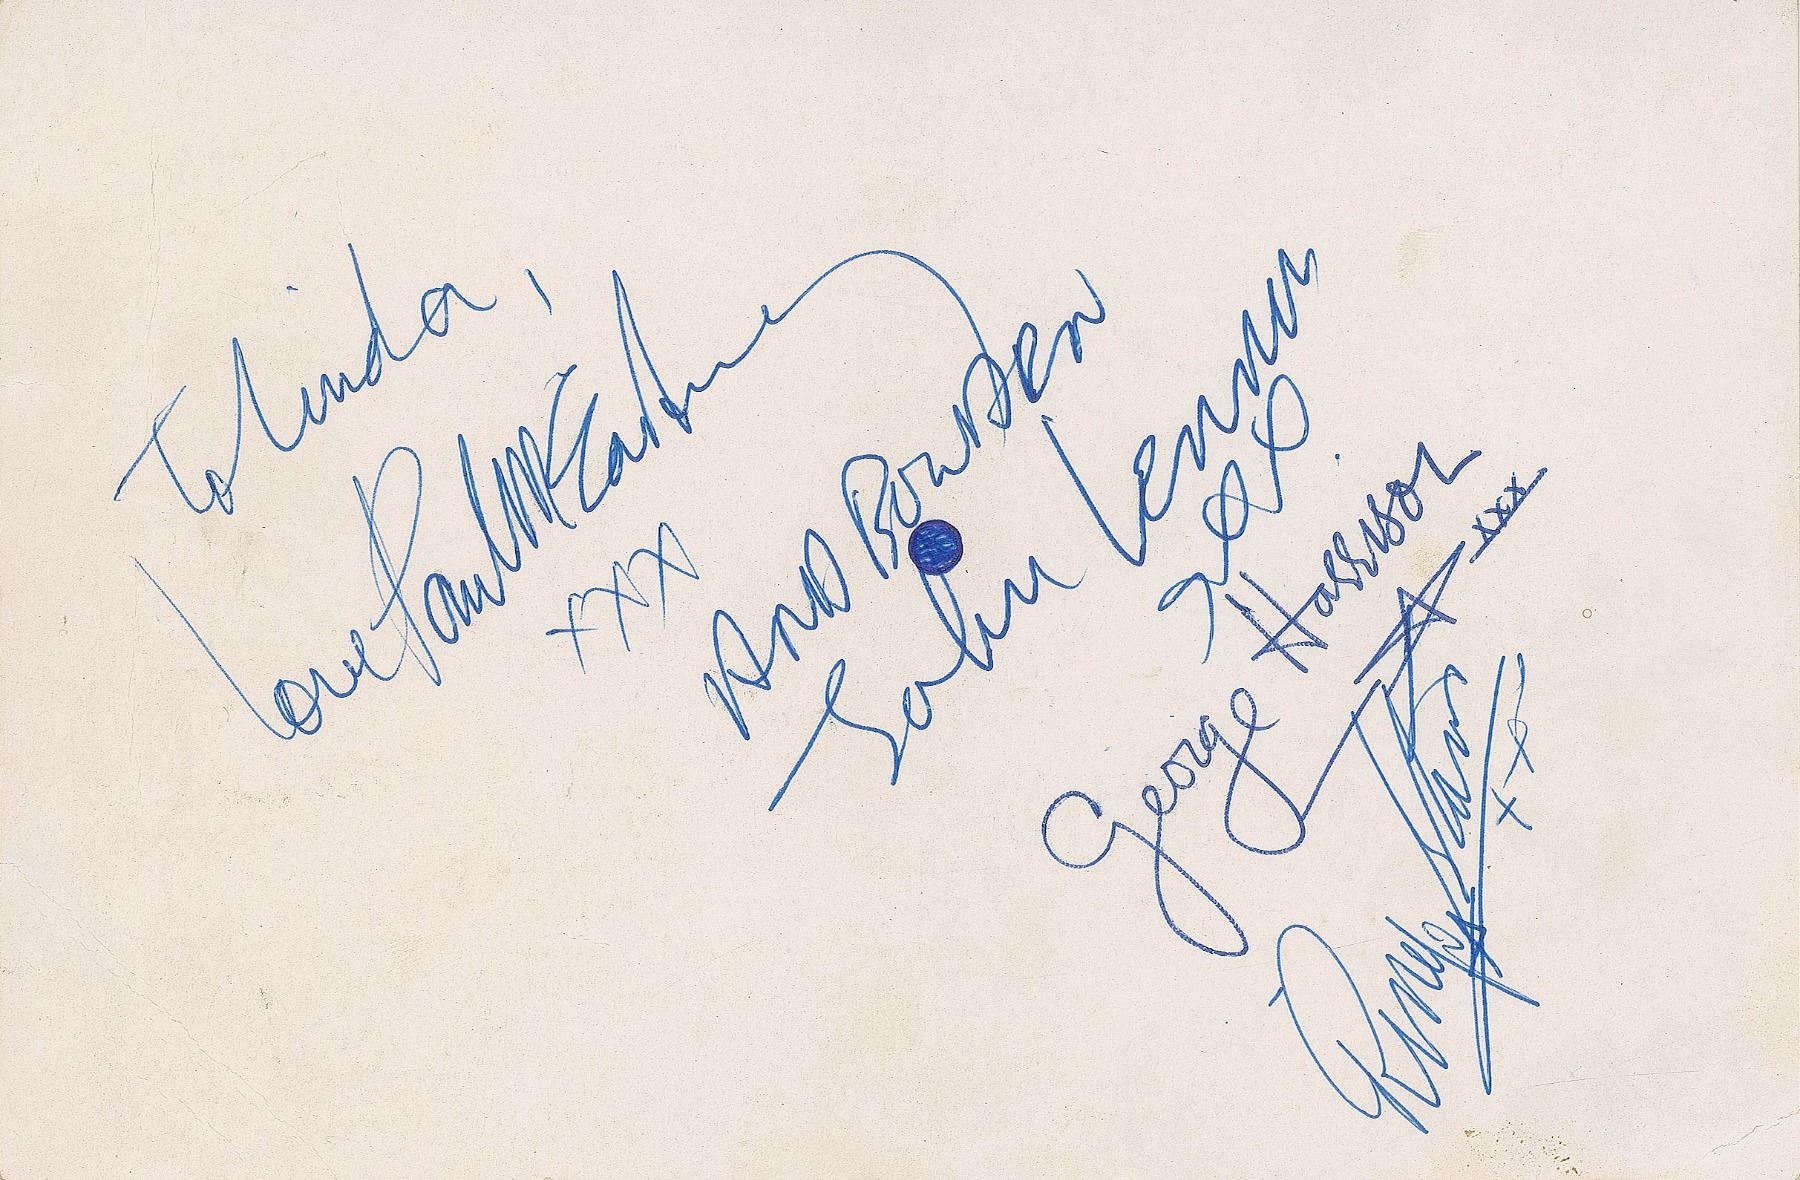 To Linda,
Love Paul McCartney
xxx
AND BOWDEN
John Lennon
xxx
George Harrison
xxx
Ringo Starr
xxx